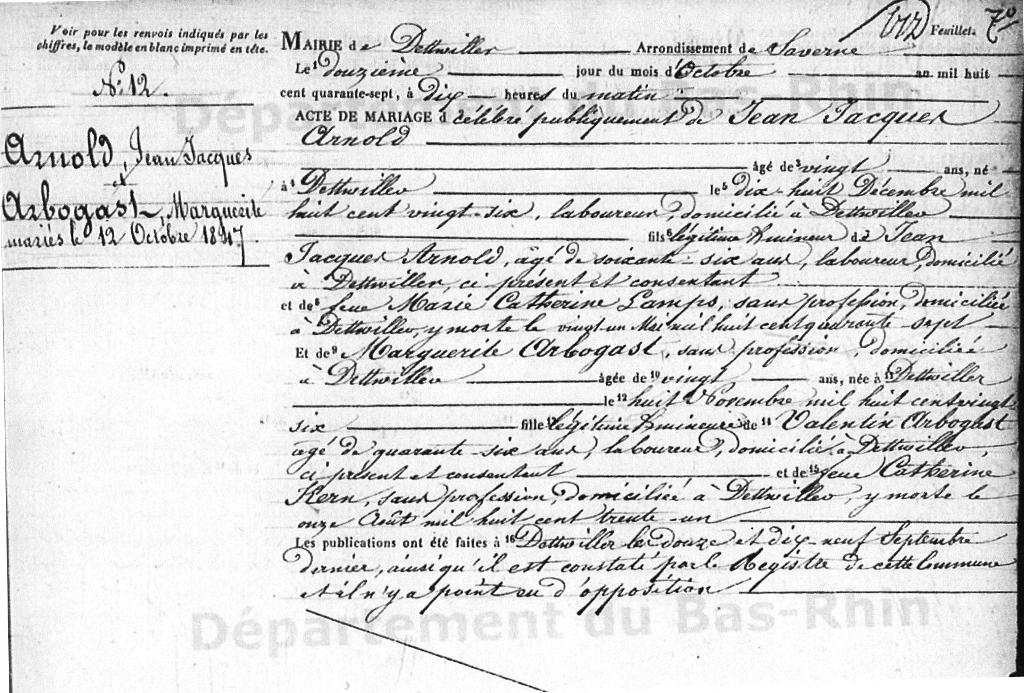 Voir pour les renvois indiqués par les
chiffres, le modèle en blanc imprimé en tête.
Feuillet. 7º
N.º 12.
Arnold, Jean Jacques
&
Arbogast, Marguerite
mariés le 12 Octobre 1847.
MAIRIE de Dettwiller Arrondissement de Saverne
Le 1 douzième jour du mois d'Octobre an mil huit
cent quarante-sept, à dix heures du matin
ACTE DE MARIAGE célébré publiquement de Jean Jacques
Arnold
âgé de 3 vingt ans, né
à 4 Dettwiller le 5 dix-huit Décembre mil
huit cent vingt-six, laboureur, domicilié à Dettwiller
fils 6 légitime & mineur de 7 Jean
Jacques Arnold, âgé de soixante-six ans, laboureur, domicilié
à Dettwiller, ci présent et consentant
et de 8 feue Marie Catherine Lamps, sans profession, domiciliée
à Dettwiller, y morte le vingt-un Mai mil huit cent quarante-sept
Et de 9 Marguerite Arbogast, sans profession, domiciliée
à Dettwiller âgée de 10 vingt ans, née à 11 Dettwiller
le 12 huit Novembre mil huit cent vingt
six fille 13 légitime & mineure de 14 Valentin Arbogast
âgé de quarante-six ans, laboureur, domicilié à Dettwiller,
ci présent et consentant et de 15 feue Catherine
Kern, sans profession, domiciliée à Dettwiller, y morte le
onze Août mil huit cent trente-un
Les publications ont été faites à 16 Dettwiller les douze et dix-neuf Septembre
dernier, ainsi qu'il est constaté par le Registre de cette Commune
et il n'y a point eu d'opposition
Département du Bas-Rhin
Département du Bas-Rhin